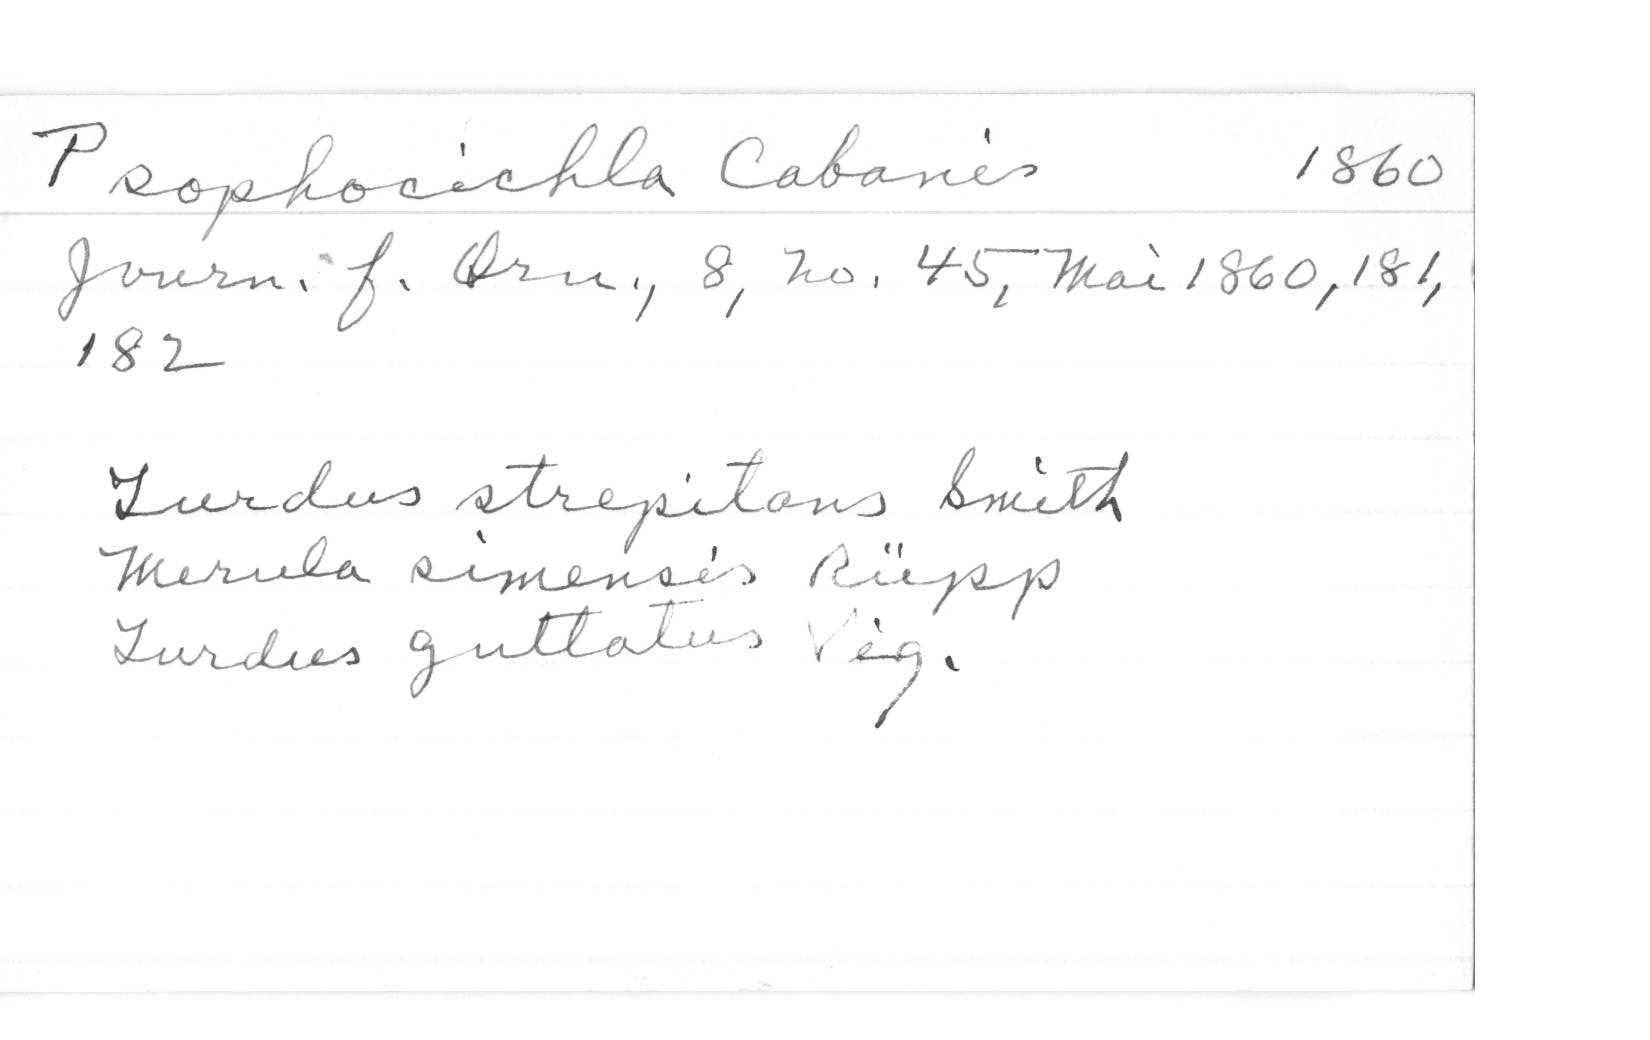 Psophocichla Cabanis 1860
Journ. f. Orn., 8, no. 45, Mai 1860, 181,
182
Turdus strepitans Smith
Merula simensis Rüpp
Turdus guttatus Vig.